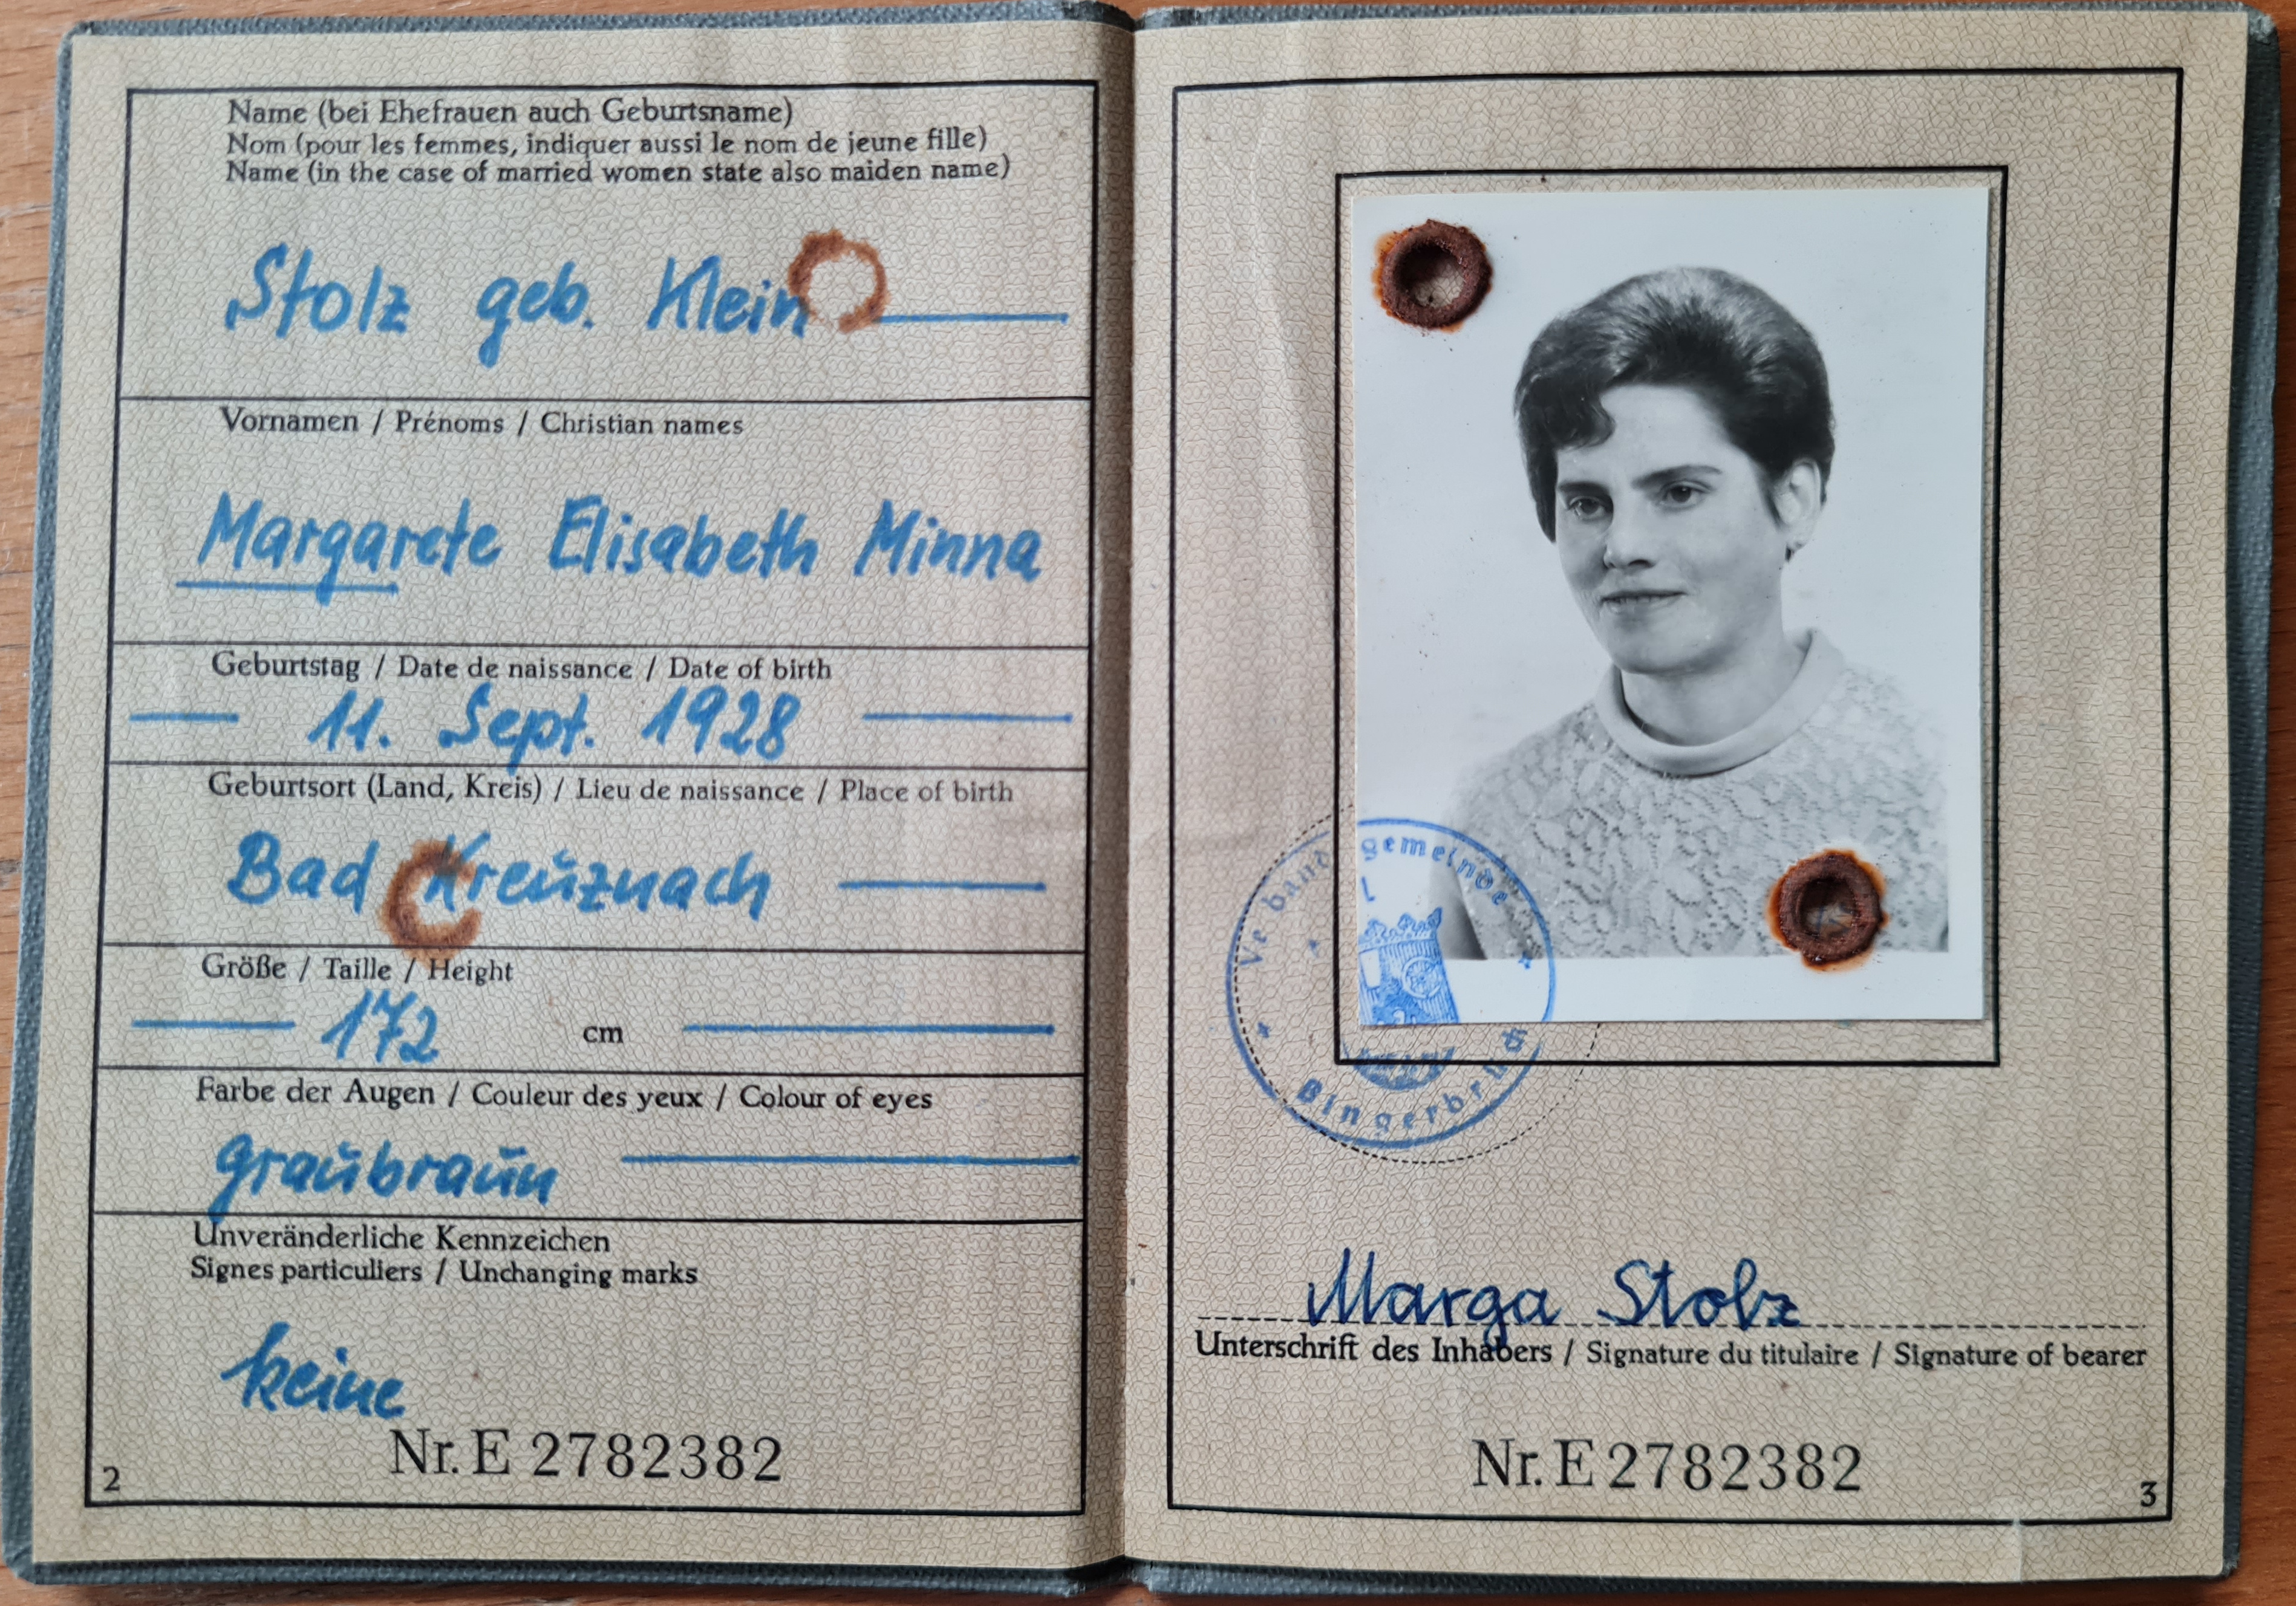 Name (bei Ehefrauen auch Geburtsname)
Nom (pour les femmes, indiquer aussi le nom de jeune fille)
Name (in the case of married women state also maiden name)
Stolz geb. Klein
Vornamen / Prénoms / Christian names
Margarete Elisabeth Minna
Geburtstag / Date de naissance / Date of birth
11. Sept. 1928
Geburtsort (Land, Kreis) / Lieu de naissance / Place of birth
Bad Kreuznach
Größe / Taille / Height
172 cm
Farbe der Augen / Couleur des yeux / Colour of eyes
graubraun
Unveränderliche Kennzeichen
Signes particuliers / Unchanging marks
keine
Nr. E 2782382
2
Verbandsgemeinde
Marga Stolz
Unterschrift des Inhabers / Signature du titulaire / Signature of bearer
Nr. E 2782382
3